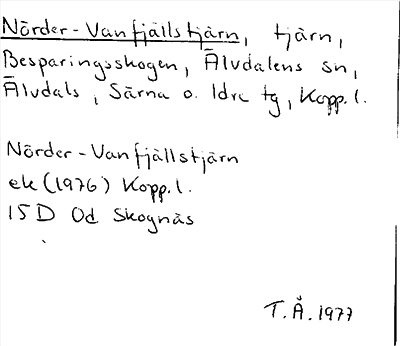 Nörder-Vanfjällstjärn, tjärn,
Besparingsskogen, Älvdalens sn,
Älvdals, Särna o. Idre tg, Kopp. l.
Nörder-Vanfjällstjärn
ek (1976) Kopp. l.
15D 0d Skognäs
T.Å. 1977